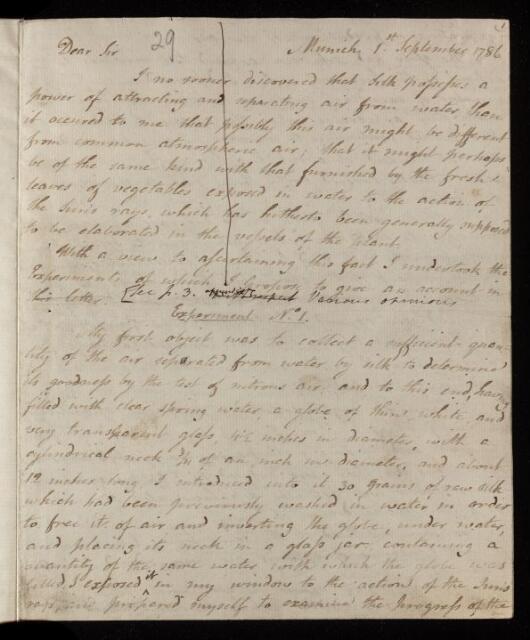 1
Dear Sir 29 Munich 1st September 1786
I no sooner discovered that silk possesses a
power of attracting and separating air from water than
it occured to me that possibly this air might be different
from common atmospheric air; that it might perhaps
be of the same kind with that furnished by the fresh
leaves of vegetables exposed in water to the action of
the Sun's rays, which has hitherto been generally supposed
to be elaborated in the vessels of the plant.
With a view to ascertaining this fact I undertook the
Experiments of which I propose to give an account in
this letter. [See p. 3. Various opinions
Experiment No. 1.
My first object was to collect a sufficient quan-
tity of the air separated from water by silk to determine
its goodness by the test of nitrous air, and to this end, having
filled with clear spring water a globe of thin, white and
very transparent glass 4½ inches in diameter, with a
cylindrical neck ¾ of an inch in diameter, and about
12 inches long, I introduced into it 30 grains of raw silk
which had been previously washed in water in order
to free it of air and inverting the globe, under water,
and placing its neck in a glass jar containing a
quantity of the same water with which the globe was
filled, I exposed it in my window to the action of the Sun's
rays, and prepared myself to examine the progress of the